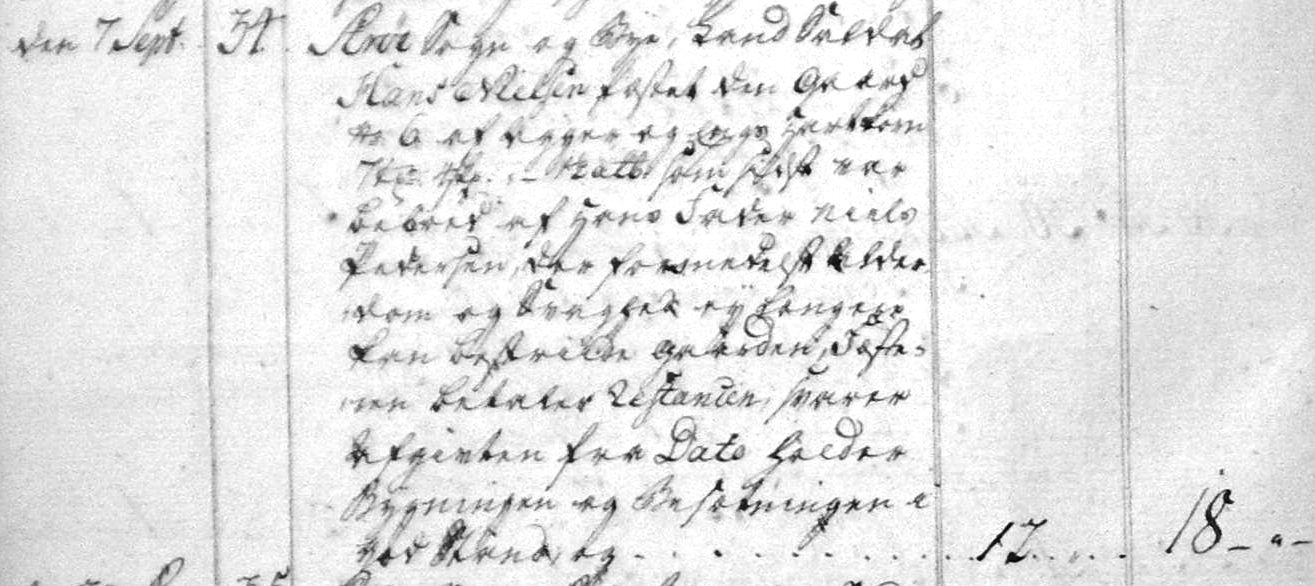 den 7 Sept. 34. Skröe Sogn og Bye, Land Soldat
Hans Nielsen fæstet den Gaard
No 6 af Ager og Eng Hartkorn
7 Td. 4 Skp. - som sidst var
beboed af Hans Fader Niels
Pedersen, der formedelst Alder
dom og Svaghed ey længere
kan bestride Gaarden, Fæste-
ren betaler Restancen, svarer
Afgivten fra Dato holder
Bygningen og Besætningen i
god Stand, og . . . . . . . . . . 17 . . . . 18 - " -
35